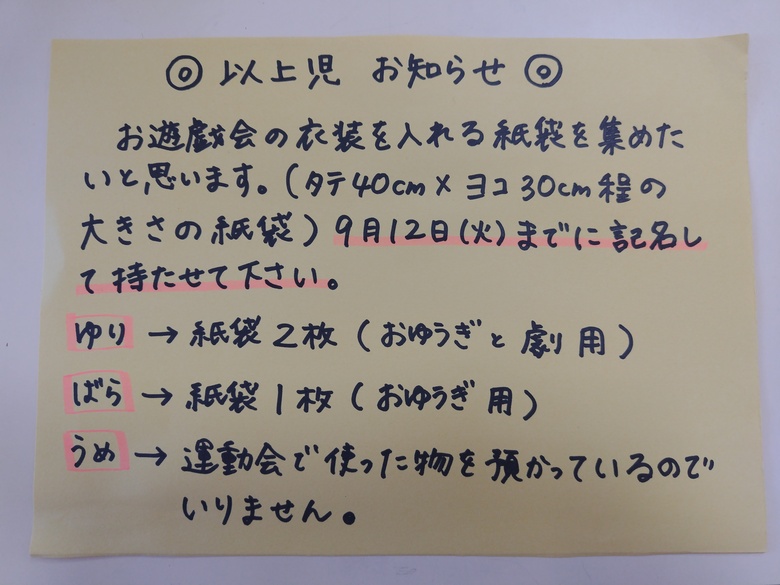 ◎ 以上児 お知らせ ◎
お遊戯会の衣装を入れる紙袋を集めた
いと思います。(タテ40cm×ヨコ30cm程の
大きさの紙袋) 9月12日(火)までに記名し
て持たせて下さい。
ゆり → 紙袋2枚 (おゆうぎと劇用)
ばら → 紙袋1枚 (おゆうぎ用)
うめ → 運動会で使った物を預かっているので
いりません。